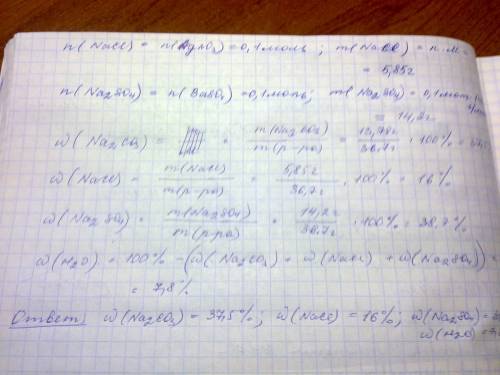 n(NaCl) = n(AgNO₃) = 0,1 моль ; m(NaCl) = n·M =
= 5,85г
n(Na₂SO₄) = n(BaSO₄) = 0,1 моль; m(Na₂SO₄) = 0,1 мол
= 14,2г
ω(Na₂CO₃) = = m(Na₂CO₃) / m(р-ра) = / 36,7г · 100% =
ω(NaCl) = m(NaCl) / m(р-ра) = 5,85г / 36,7г · 100% = 16%
ω(Na₂SO₄) = m(Na₂SO₄) / m(р-ра) = 14,2г / 36,7г · 100% = 38,7%
ω(H₂O) = 100% - (ω(Na₂CO₃) + ω(NaCl) + ω(Na₂SO₄)) =
= 7,8%
Ответ: ω(Na₂CO₃) = 37,5%; ω(NaCl) = 16%; ω(Na₂SO₄) =
ω(H₂O) =